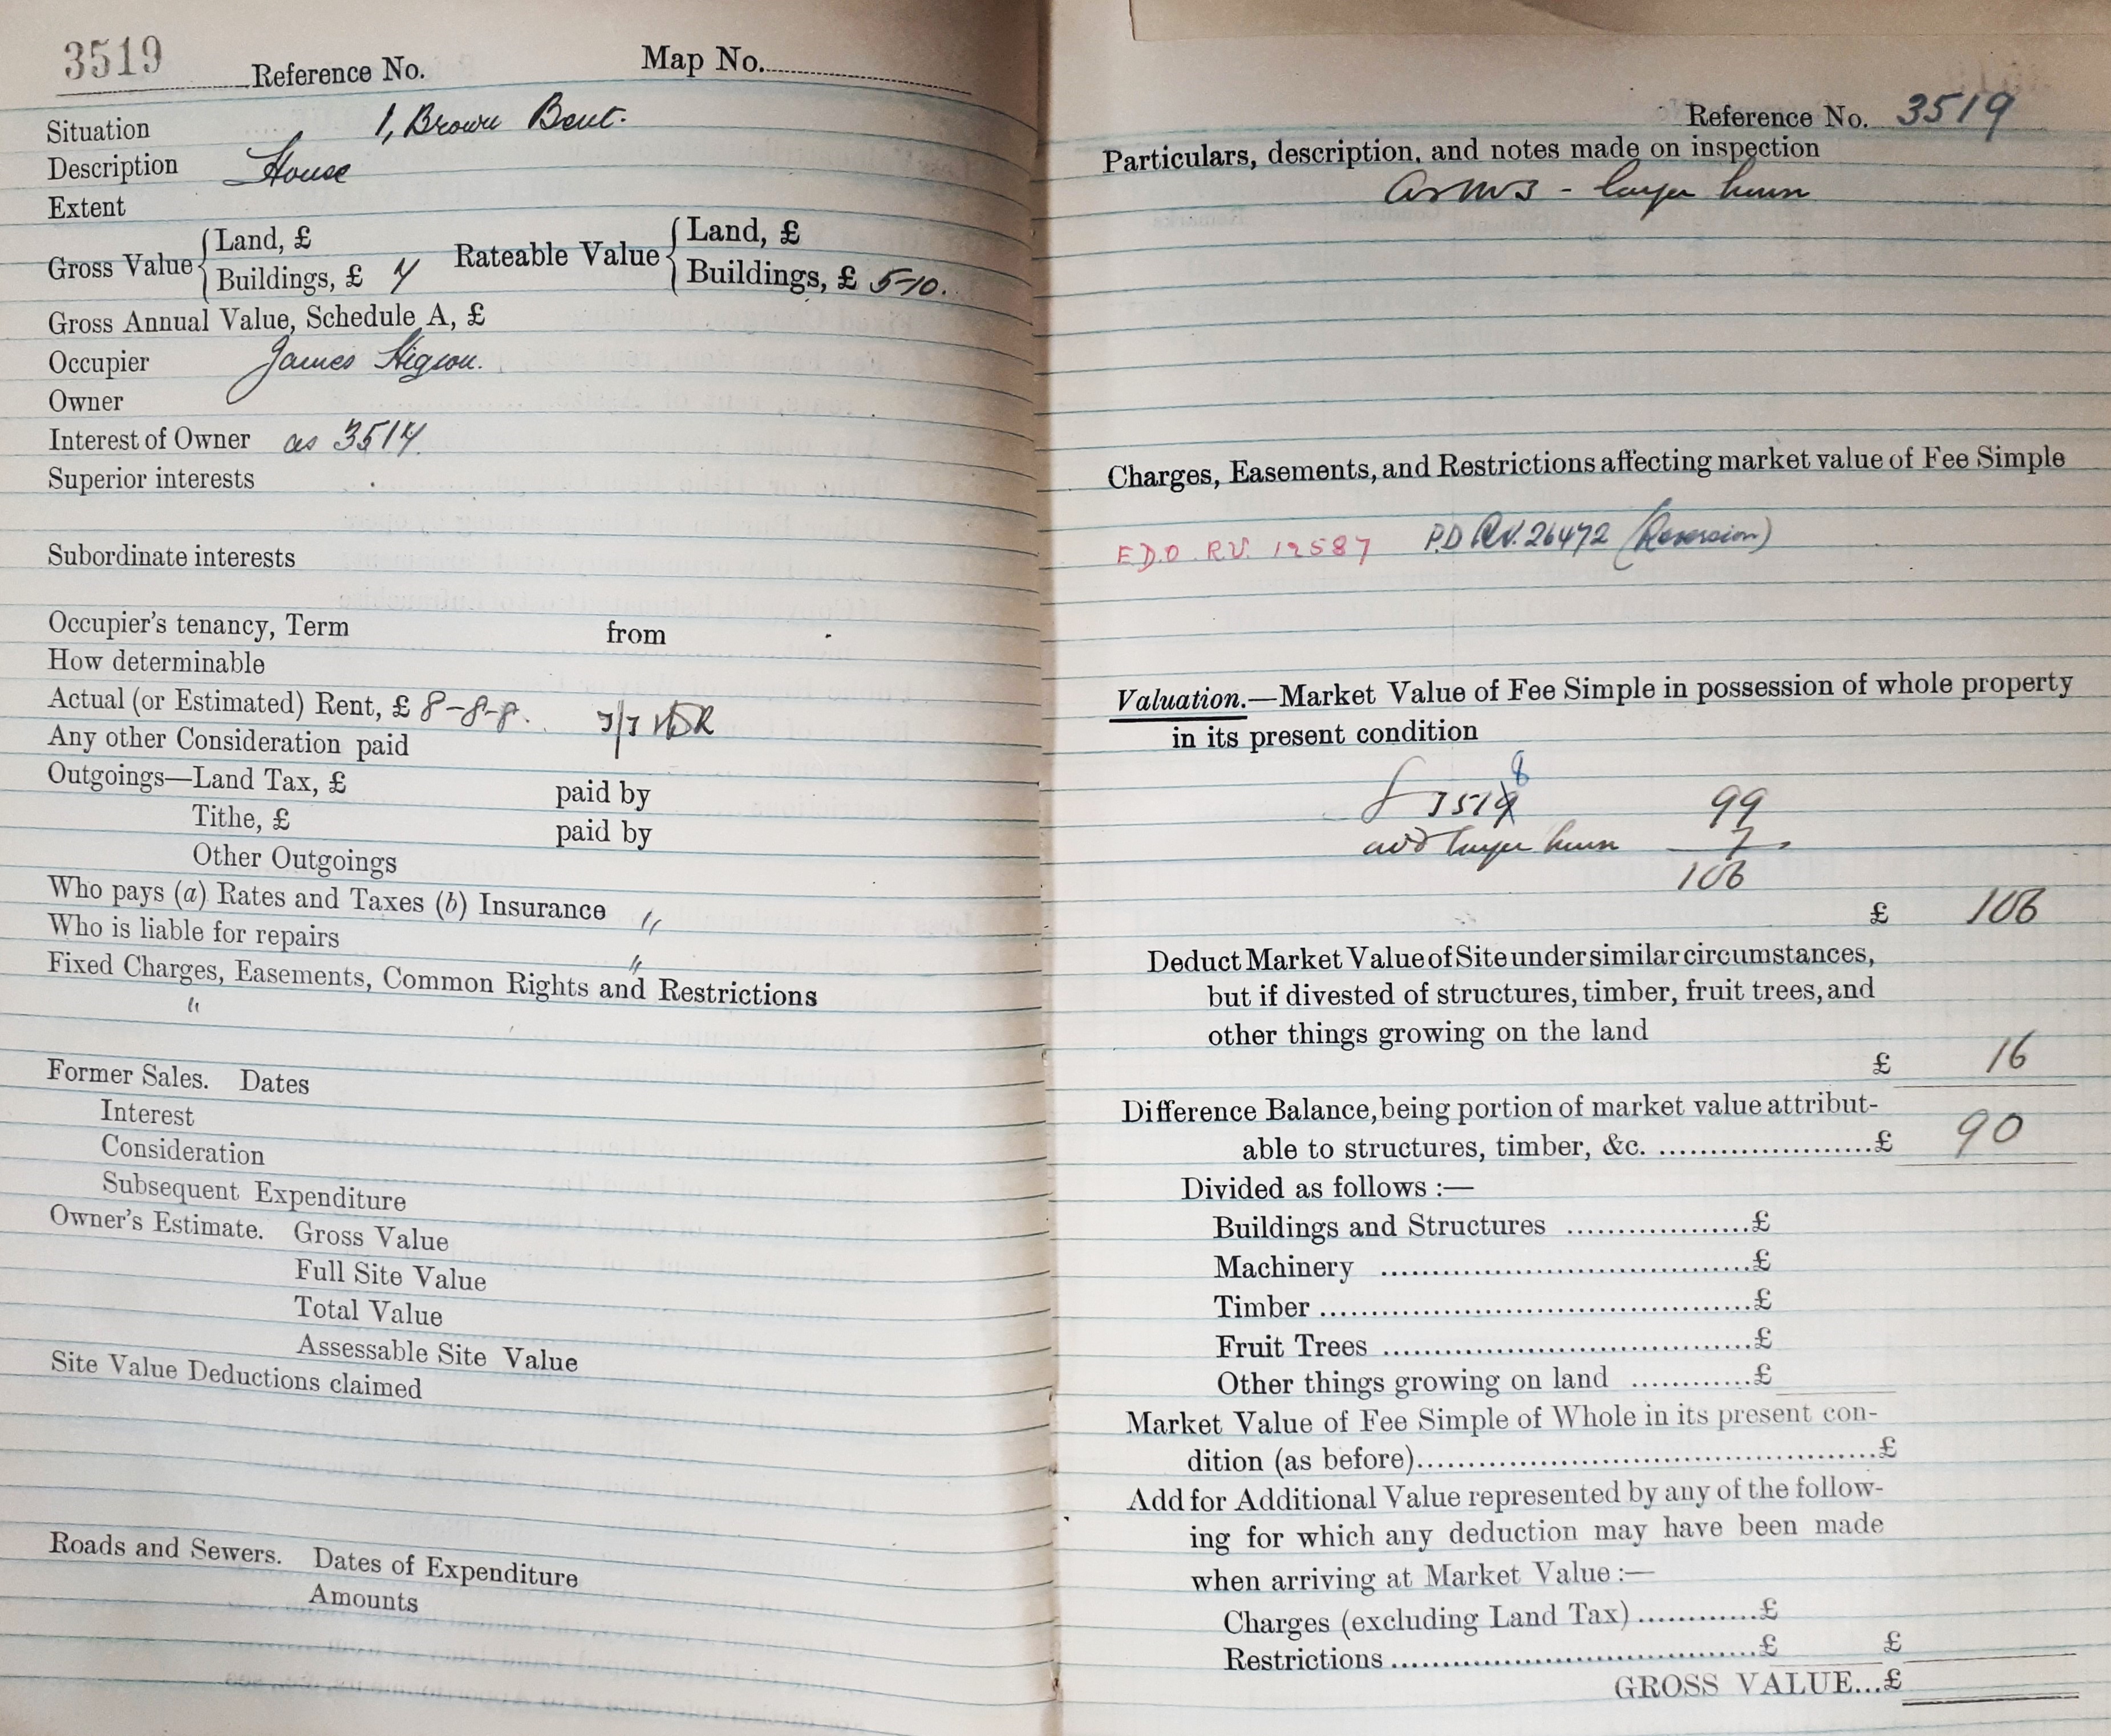 3519 Reference No. Map No.
Situation 1, Brown Bent.
Description House
Extent
Gross Value { Land, £ Rateable Value { Land, £
Buildings, £ 7 Buildings, £ 5-10.
Gross Annual Value, Schedule A, £
Occupier James Higson.
Owner
Interest of Owner as 3514.
Superior interests
Subordinate interests
Occupier's tenancy, Term from
How determinable
Actual (or Estimated) Rent, £ 8-8-8. 3/3
Any other Consideration paid
Outgoings—Land Tax, £ paid by
Tithe, £ paid by
Other Outgoings
Who pays (a) Rates and Taxes (b) Insurance "
Who is liable for repairs "
Fixed Charges, Easements, Common Rights and Restrictions
"
Former Sales. Dates
Interest
Consideration
Subsequent Expenditure
Owner's Estimate. Gross Value
Full Site Value
Total Value
Assessable Site Value
Site Value Deductions claimed
Roads and Sewers. Dates of Expenditure
Amounts
Reference No. 3519
Particulars, description, and notes made on inspection
as - larger
Charges, Easements, and Restrictions affecting market value of Fee Simple
E.D.O. R.V. 12587 P.D RV. 26472 (Reversion)
Valuation.—Market Value of Fee Simple in possession of whole property
in its present condition
8
3519 99
add larger 7
106
£ 106
Deduct Market Value of Site under similar circumstances,
but if divested of structures, timber, fruit trees, and
other things growing on the land
£ 16
Difference Balance, being portion of market value attribut-
able to structures, timber, &c. ....................£ 90
Divided as follows :—
Buildings and Structures ..................£
Machinery ....................................£
Timber ..........................................£
Fruit Trees ....................................£
Other things growing on land ............£
Market Value of Fee Simple of Whole in its present con-
dition (as before).............................................£
Add for Additional Value represented by any of the follow-
ing for which any deduction may have been made
when arriving at Market Value :—
Charges (excluding Land Tax) ............£
Restrictions .....................................£ £
GROSS VALUE...£